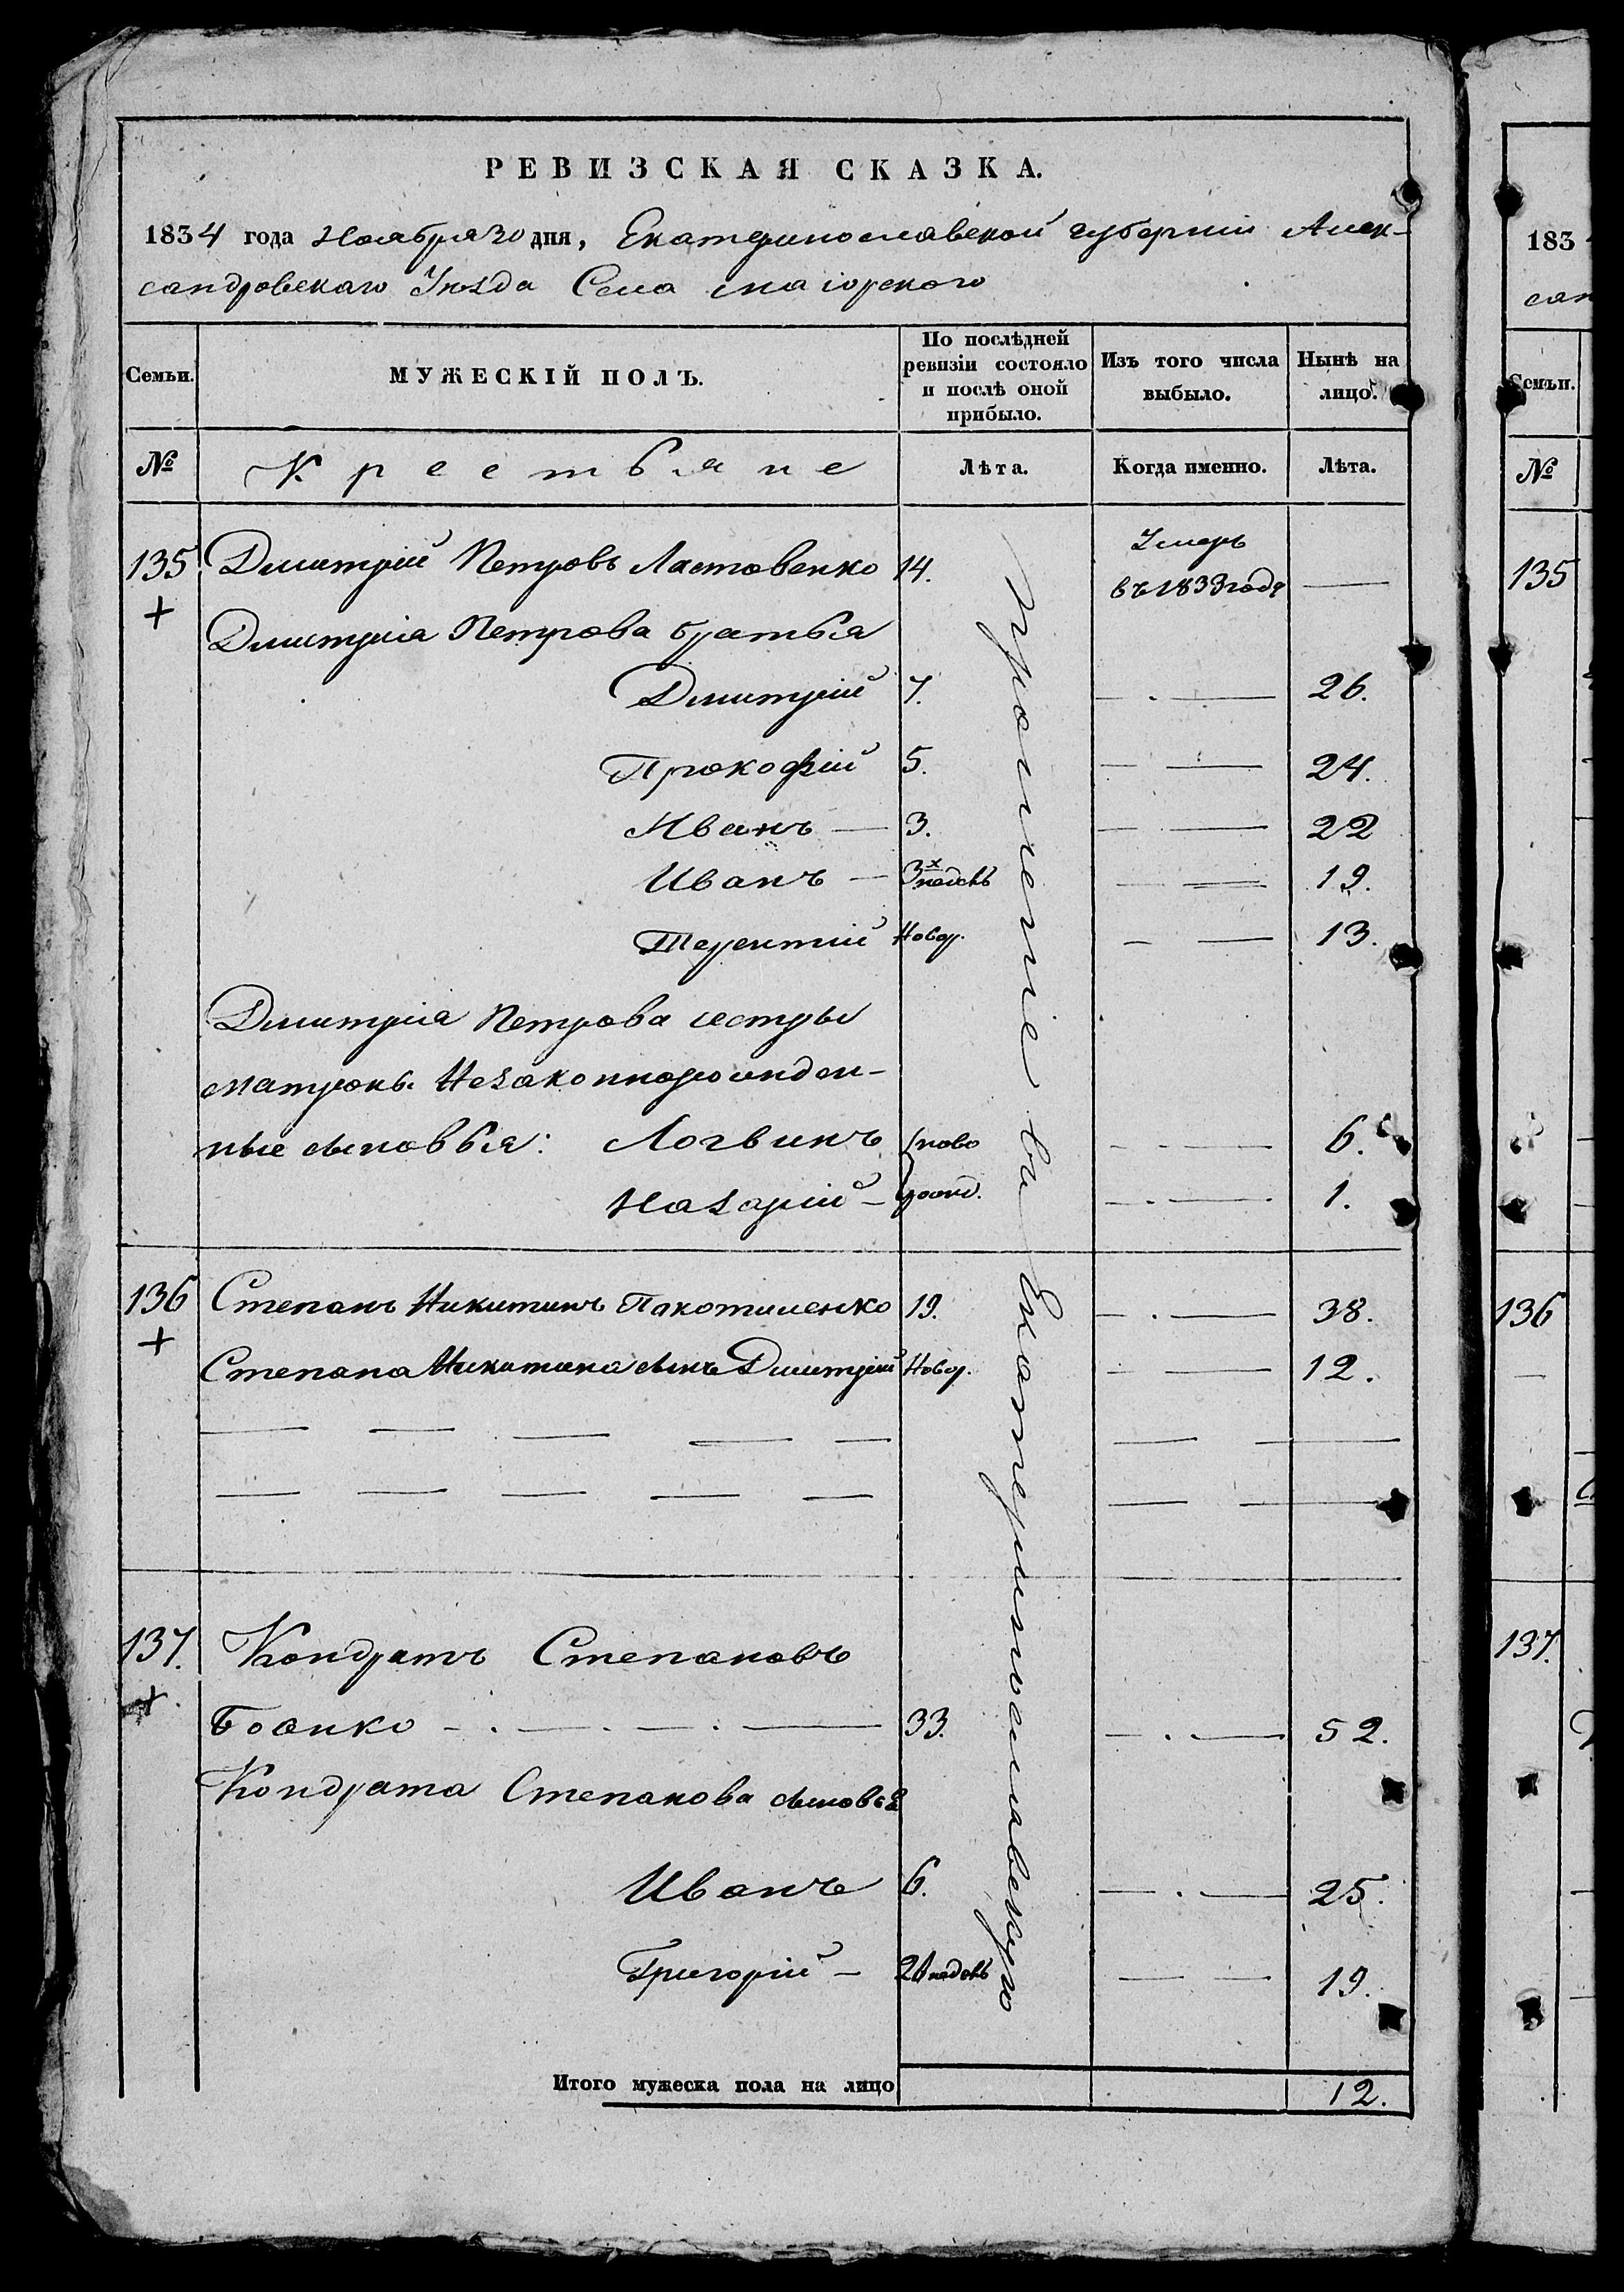 РЕВИЗСКАЯ СКАЗКА.
1834 года Ноября 30 дня, Екатеринославской губернии Алек-
сандровскаго Уезда Села Маіорского
Семьи. МУЖЕСКІЙ ПОЛЪ. По послѣдней ревизіи состояло и послѣ оной прибыло. Изъ того числа выбыло. Нынѣ на лицо.
№ Крестьяне Лѣта. Когда именно. Лѣта.
135 Дмитрій Петровъ Ластовенко 14. Умеръ въ 1833 годѣ —
+
Дмитрія Петрова братья
Дмитрій 7. — 26.
Прокофій 5. — 24.
Иванъ — 3. — 22
Иванъ — 3х недель — 19.
Терентий Новор. — 13.
Дмитрія Петрова сестры
Матроны Незаконнорожден-
ные сыновья: Логвинъ ново — 6.
Назарій — рожд. — 1.
136 Степанъ Никитинъ Пакотиленко 19. — 38.
+
Степана Никитина сынъ Дмитрій Новор. — 12.
137. Кондратъ Степановъ
+
Божко — 33. — 52.
Кондрата Степанова сыновья
Иванъ 6. — 25.
Григорій — недель — 19.
Итого мужеска пола на лицо 12.
прописные въ Екатеринославскую
183
сан
Семьи.
№
135
136
137.